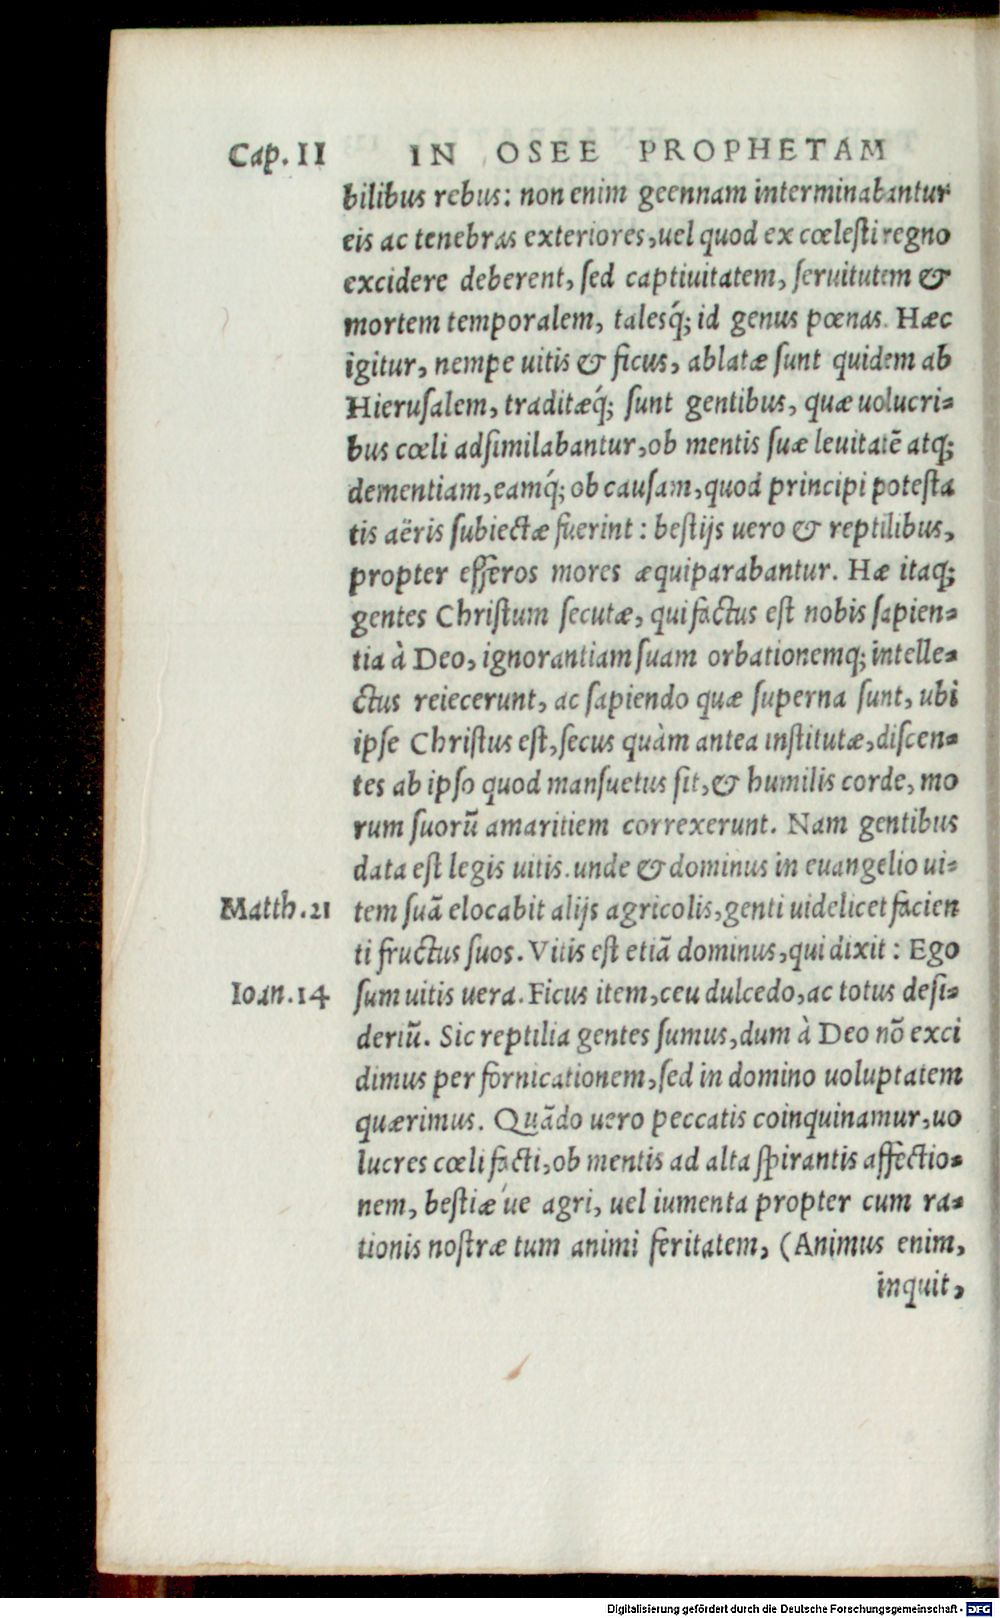 Cap. II IN OSEE PROPHETAM
bilibus rebus: non enim geennam interminabantur
eis ac tenebras exteriores, uel quod ex cœlesti regno
excidere deberent, sed captiuitatem, seruitutem &
mortem temporalem, talesq́; id genus pœnas. Hæc
igitur, nempe uitis & ficus, ablatæ sunt quidem ab
Hierusalem, traditæq́; sunt gentibus, quæ uolucri-
bus cœli adsimilabantur, ob mentis suæ leuitatē atq;
dementiam, eamq́; ob causam, quod principi potesta
tis aëris subiectæ fuerint: bestijs uero & reptilibus,
propter efferos mores æquiparabantur. Hæ itaq;
gentes Christum secutæ, qui factus est nobis sapien-
tia à Deo, ignorantiam suam orbationemq; intelle-
ctus reiecerunt, ac sapiendo quæ superna sunt, ubi
ipse Christus est, secus quàm antea institutæ, discen-
tes ab ipso quod mansuetus sit, & humilis corde, mo
rum suorū amaritiem correxerunt. Nam gentibus
data est legis uitis. unde & dominus in euangelio ui-
Matth. 21 tem suā elocabit alijs agricolis, genti uidelicet facien
ti fructus suos. Vitis est etiā dominus, qui dixit: Ego
Ioan. 14 sum uitis uera. Ficus item, ceu dulcedo, ac totus desi-
deriū. Sic reptilia gentes sumus, dum à Deo nō exci
dimus per fornicationem, sed in domino uoluptatem
quærimus. Quādo uero peccatis coinquinamur, uo
lucres cœli facti, ob mentis ad alta spirantis affectio-
nem, bestiæ ́ue agri, uel iumenta propter cum ra-
tionis nostræ tum animi feritatem, (Animus enim,
inquit,
Digitalisierung gefördert durch die Deutsche Forschungsgemeinschaft - DFG